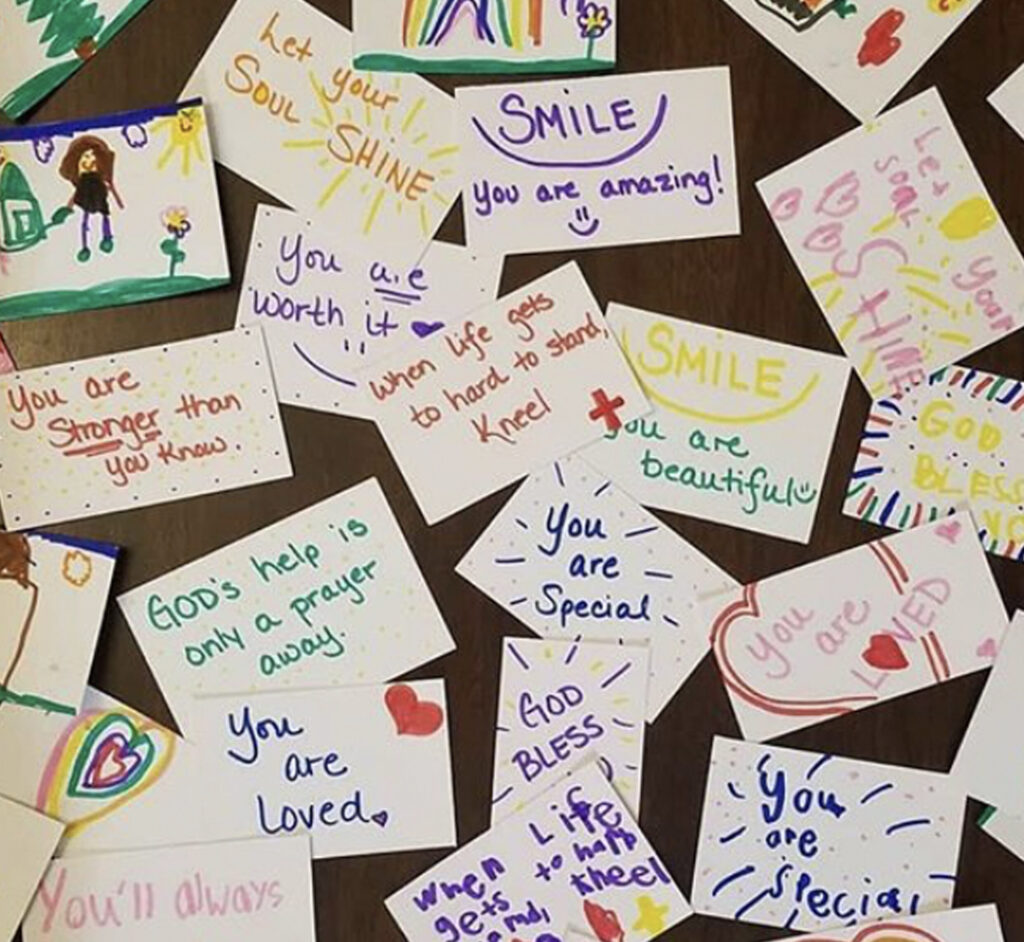 Let your
SOUL SHINE
SMILE
you are amazing!
Let
your
soul
SHINE
You are
worth it
When life gets
to hard to stand,
Kneel
SMILE
you are
beautiful
You are
Stronger than
you know.
GOD
BLESS
You
are
Special
GOD's help is
only a prayer
away.
You are
LOVED
You
are
Loved
GOD
BLESS
You
are
Special
When Life
gets to
Kneel
You'll always